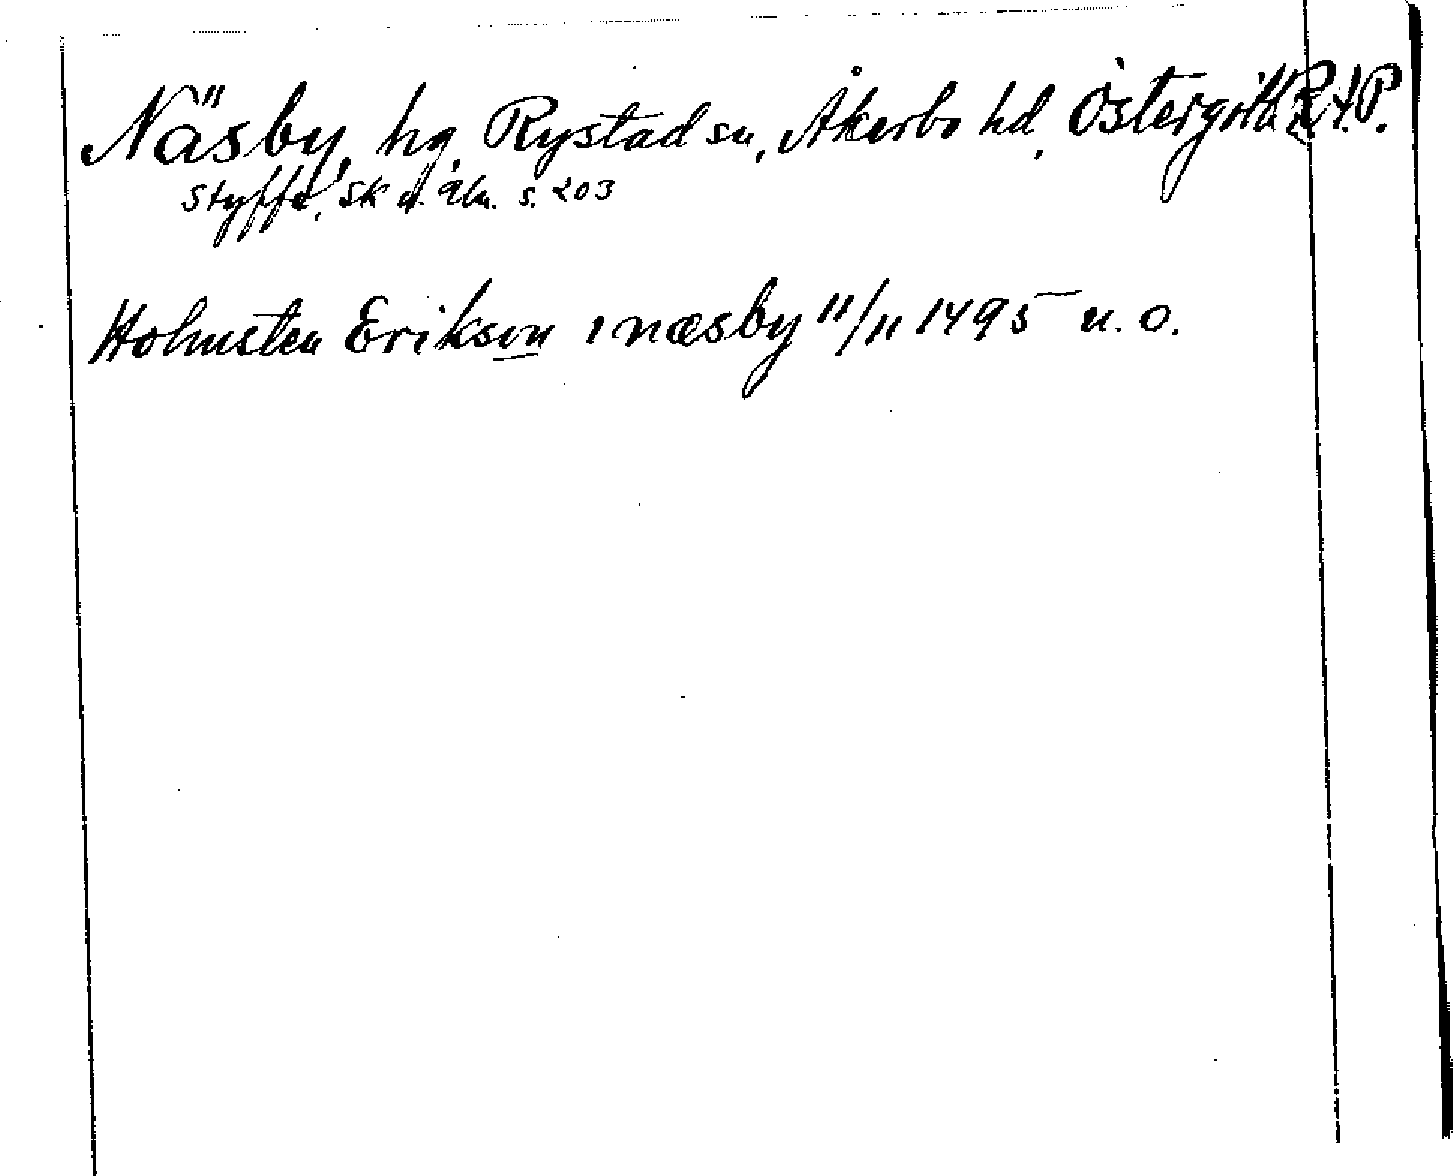 Näsby, hg, Rystad sn, Åkerbo hd, Östergötl. R.A.P.
Styffe, Sk u. Un. s. 203
Holmsten Erikson i næsby 11/11 1495 u. o.